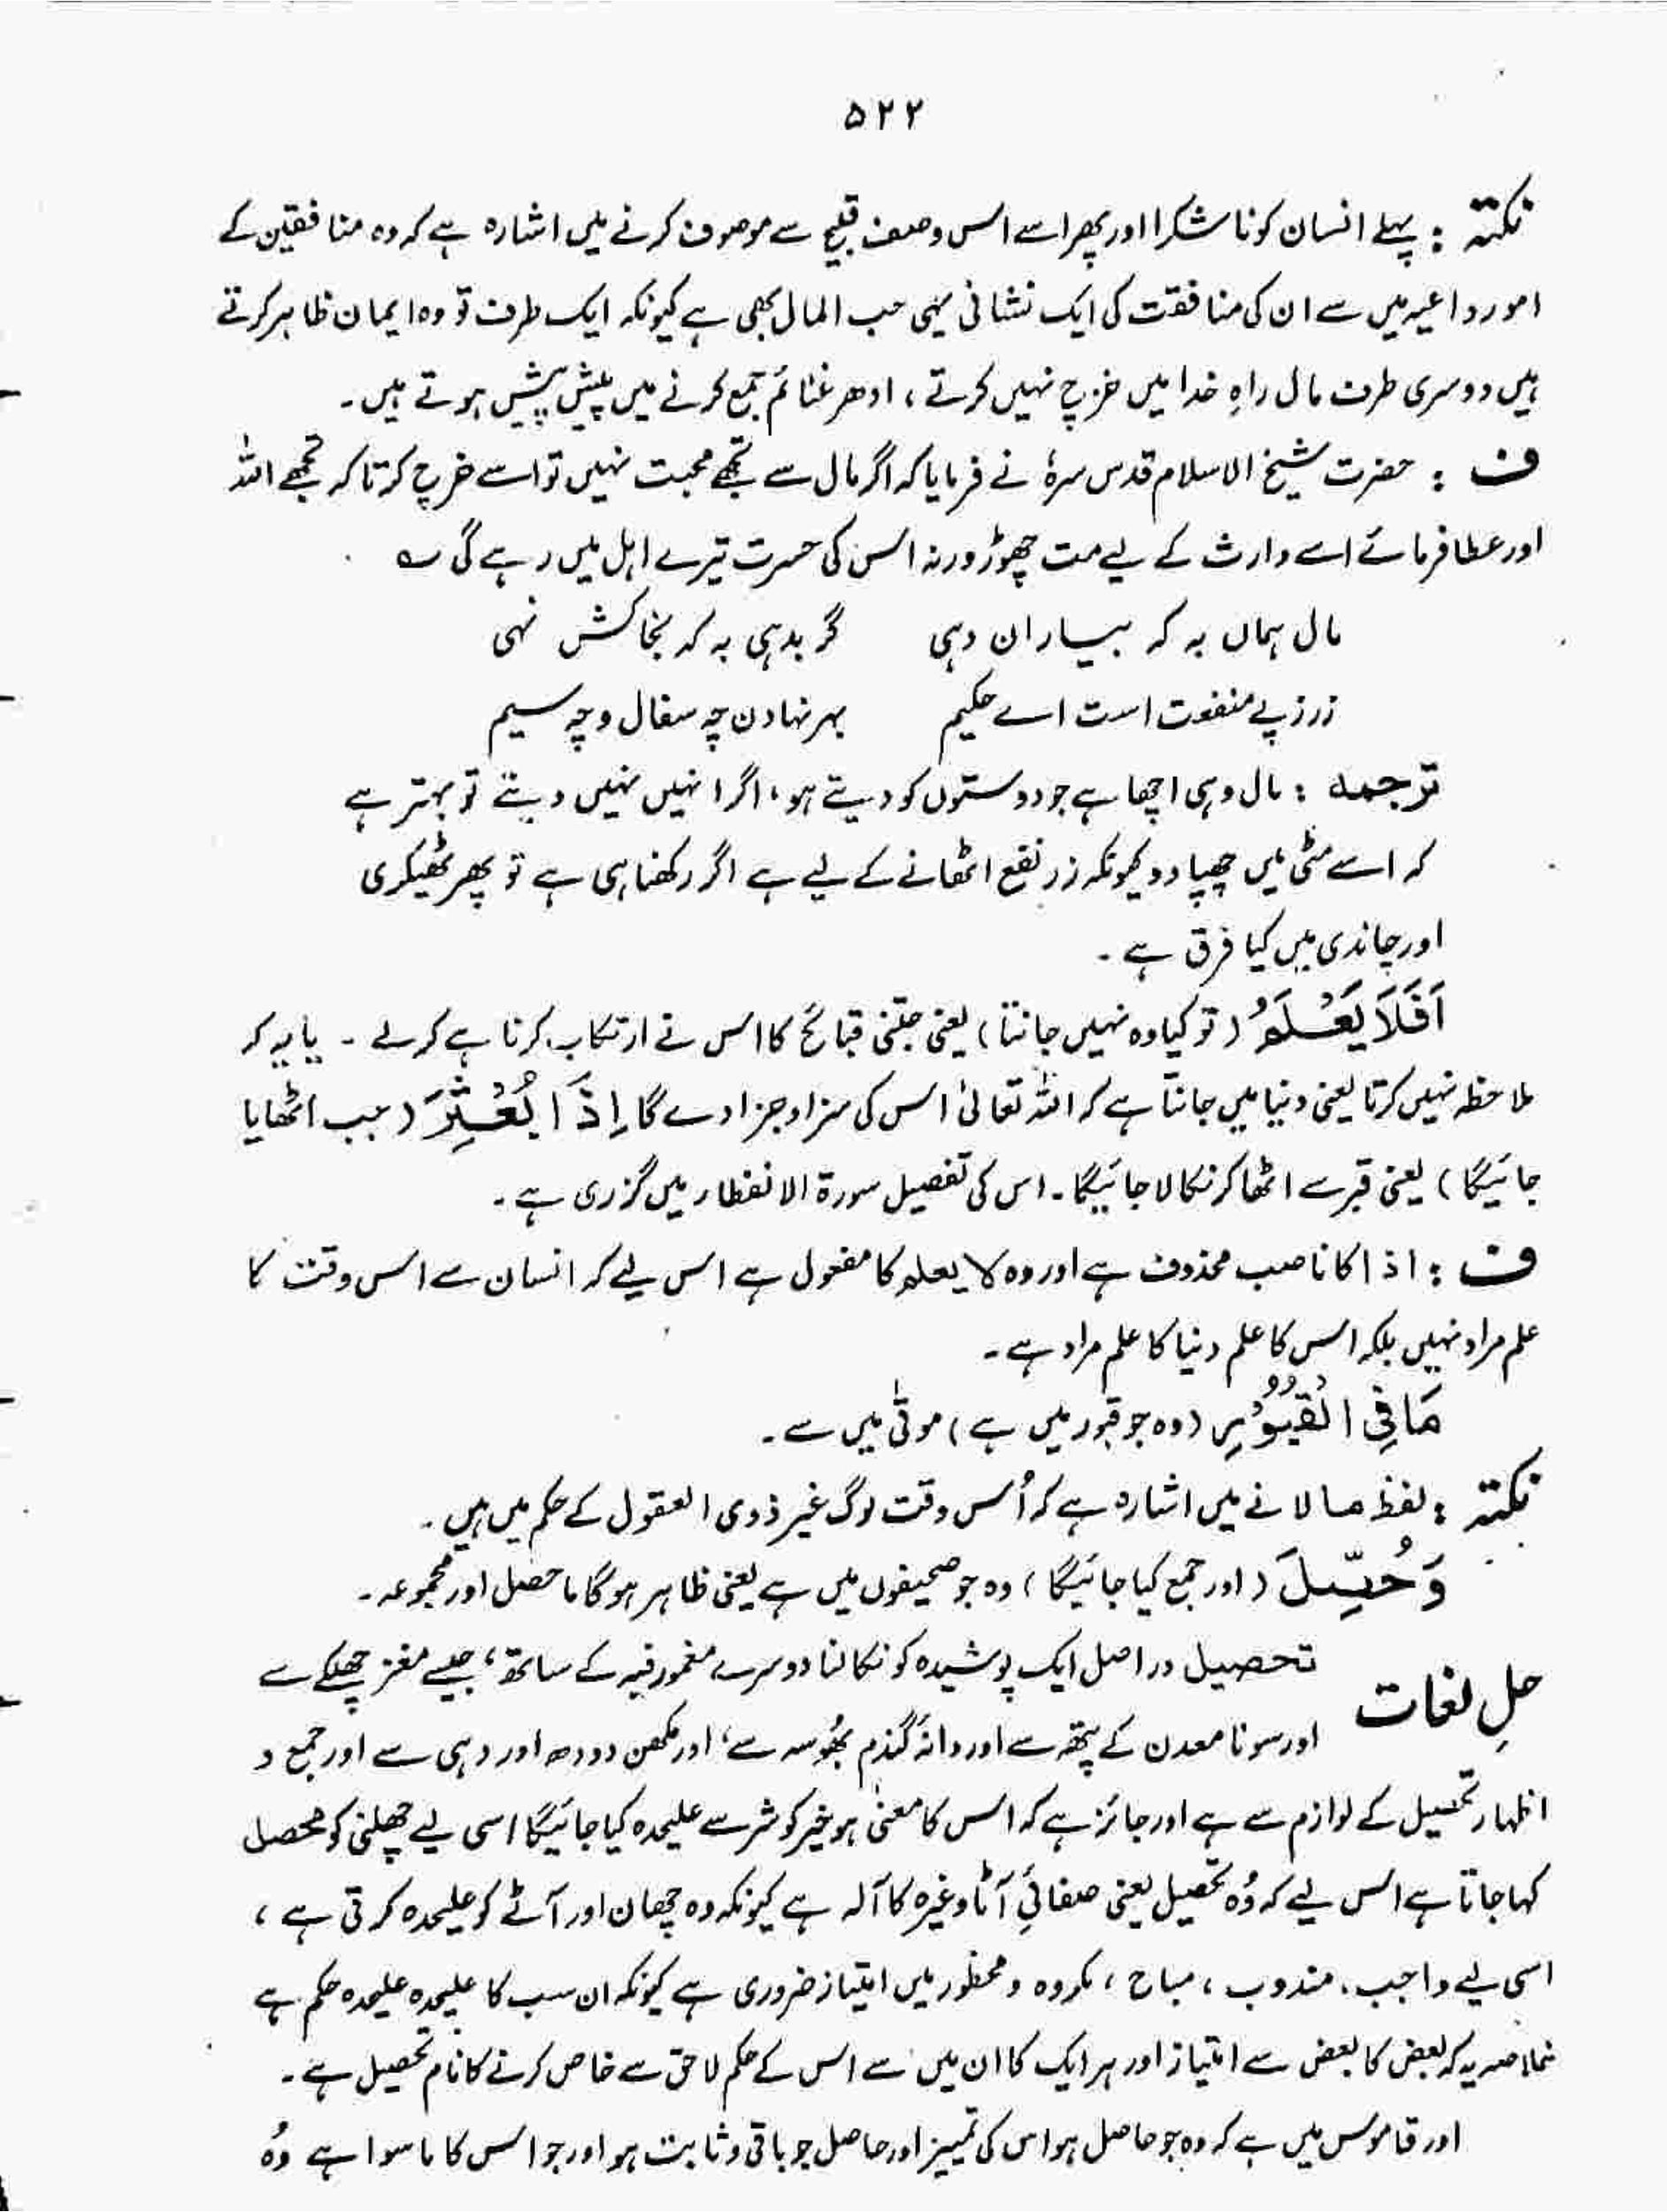 ۵۲۲
نکتہ : پہلے انسان کو ناشکرا اور پھر اسے اس وصف قبیح سے موصوف کرنے میں اشارہ ہے کہ وہ منافقین کے
امور داعیہ میں سے ان کی منافقت کی ایک نشانی یہی حب المال بھی ہے کیونکہ ایک طرف تو وہ ایمان ظاہر کرتے
ہیں دوسری طرف مال راہِ خدا میں خرچ نہیں کرتے ، ادھر غنائم جمع کرنے میں پیش پیش ہوتے ہیں ۔
ف : حضرت شیخ الاسلام قدس سرہٗ نے فرمایا کہ اگر مال سے تجھے محبت نہیں تو اسے خرچ کر تاکہ تجھے اللہ
اور عطا فرمائے اسے وارث کے لیے مت چھوڑ ورنہ اس کی حسرت تیرے اہل میں رہے گی ؎
مال ہماں بہ کہ بیساران دہی گر بدہی بہ کہ بخاکش نہی
زر ز پے منفعت است اے حکیم بہر نہادن چہ سفال و چہ سیم
ترجمہ : مال وہی اچھا ہے جو دوستوں کو دیتے ہو ، اگر انہیں نہیں دیتے تو بہتر ہے
کہ اسے مٹی میں چھپا دو کیونکہ زر نفع اٹھانے کے لیے ہے اگر رکھنا ہی ہے تو پھر ٹھیکری
اور چاندی میں کیا فرق ہے ۔
اَفَلَا یَعْلَمُ ( تو کیا وہ نہیں جانتا ) یعنی جتنی قبائح کا اس نے ارتکاب کرنا ہے کرلے ۔ یا یہ کہ
ملاحظہ نہیں کرتا یعنی دنیا میں جانتا ہے کہ اللہ تعالیٰ اس کی سزا و جزا دے گا اِذَا بُعْثِرَ ( جب اٹھایا
جائیگا ) یعنی قبر سے اٹھا کر نکالا جائیگا ۔ اس کی تفصیل سورۃ الانفطار میں گزری ہے ۔
ف : اذا کا ناصب محذوف ہے اور وہ لا یعلم کا مفعول ہے اس لیے کہ انسان سے اس وقت کا
علم مراد نہیں بلکہ اس کا علم دنیا کا علم مراد ہے ۔
مَا فِی الْقُبُوْرِ ( وہ جو قبور میں ہے ) موتٰی میں سے ۔
نکتہ : لفظ ما لانے میں اشارہ ہے کہ اُس وقت لوگ غیر ذوی العقول کے حکم میں ہیں ۔
وَ حُصِّلَ ( اور جمع کیا جائیگا ) وہ جو صحیفوں میں ہے یعنی ظاہر ہوگا ماحصل اور مجموعہ ۔
حلِ لغات
تحصیل دراصل ایک پوشیدہ کو نکالنا دوسرے مغمور فیہ کے ساتھ ، جیسے مغز چھلکے سے
اور سونا معدن کے پتھر سے اور دانۂ گندم بھُوسہ سے ، اور مکھن دودھ اور دہی سے اور جمع و
اظہار تحصیل کے لوازم سے ہے اور جائز ہے کہ اس کا معنیٰ ہو خیر کو شر سے علیحدہ کیا جائیگا اسی لیے چھلنی کو محصل
کہا جاتا ہے اس لیے کہ وُہ تحصیل یعنی صفائیِ آٹا وغیرہ کا آلہ ہے کیونکہ وہ چھان اور آٹے کو علیحدہ کرتی ہے ،
اسی لیے واجب ، مندوب ، مباح ، مکروہ و محظور میں امتیاز ضروری ہے کیونکہ ان سب کا علیحدہ علیحدہ حکم ہے
خلاصہ یہ کہ بعض کا بعض سے امتیاز اور ہر ایک کا ان میں سے اس کے حکم لاحق سے خاص کرنے کا نام تحصیل ہے ۔
اور قاموس میں ہے کہ وہ جو حاصل ہو اس کی تمییز اور حاصل جو باقی و ثابت ہو اور جو اس کا ماسوا ہے وُہ